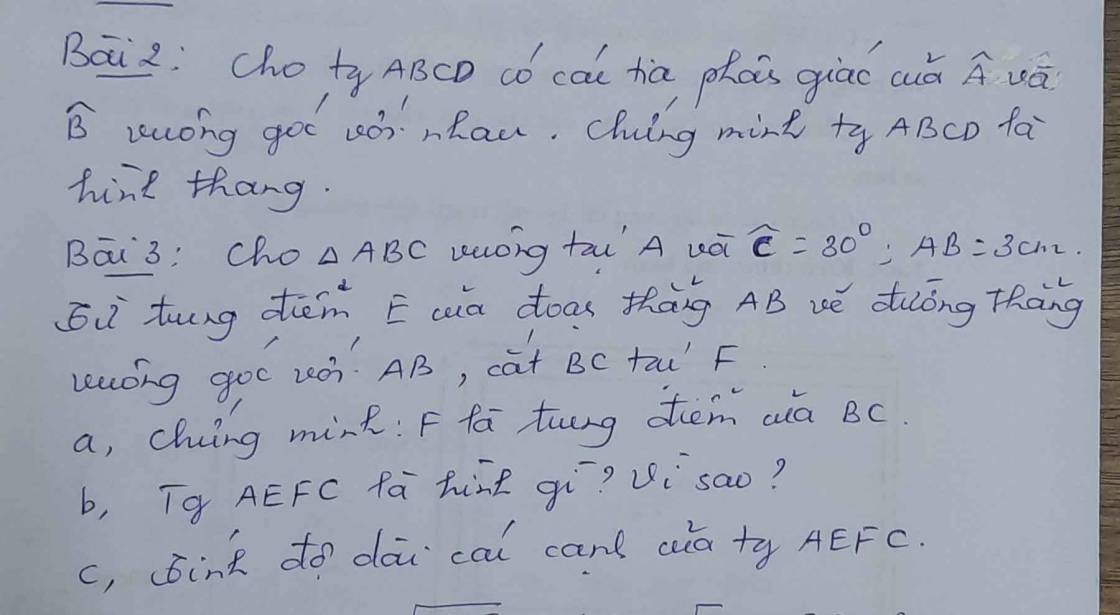 Bài 2: Cho tg ABCD có các tia phân giác của Â và
B̂ vuông góc với nhau. Chứng minh tg ABCD là
hình thang.
Bài 3: Cho △ ABC vuông tại A và Ĉ = 30⁰; AB = 3cm.
Từ trung điểm E của đoạn thẳng AB vẽ đường thẳng
vuông góc với AB, cắt BC tại F.
a, Chứng minh: F là trung điểm của BC.
b, Tg AEFC là hình gì? Vì sao?
c, Tính độ dài các cạnh của tg AEFC.